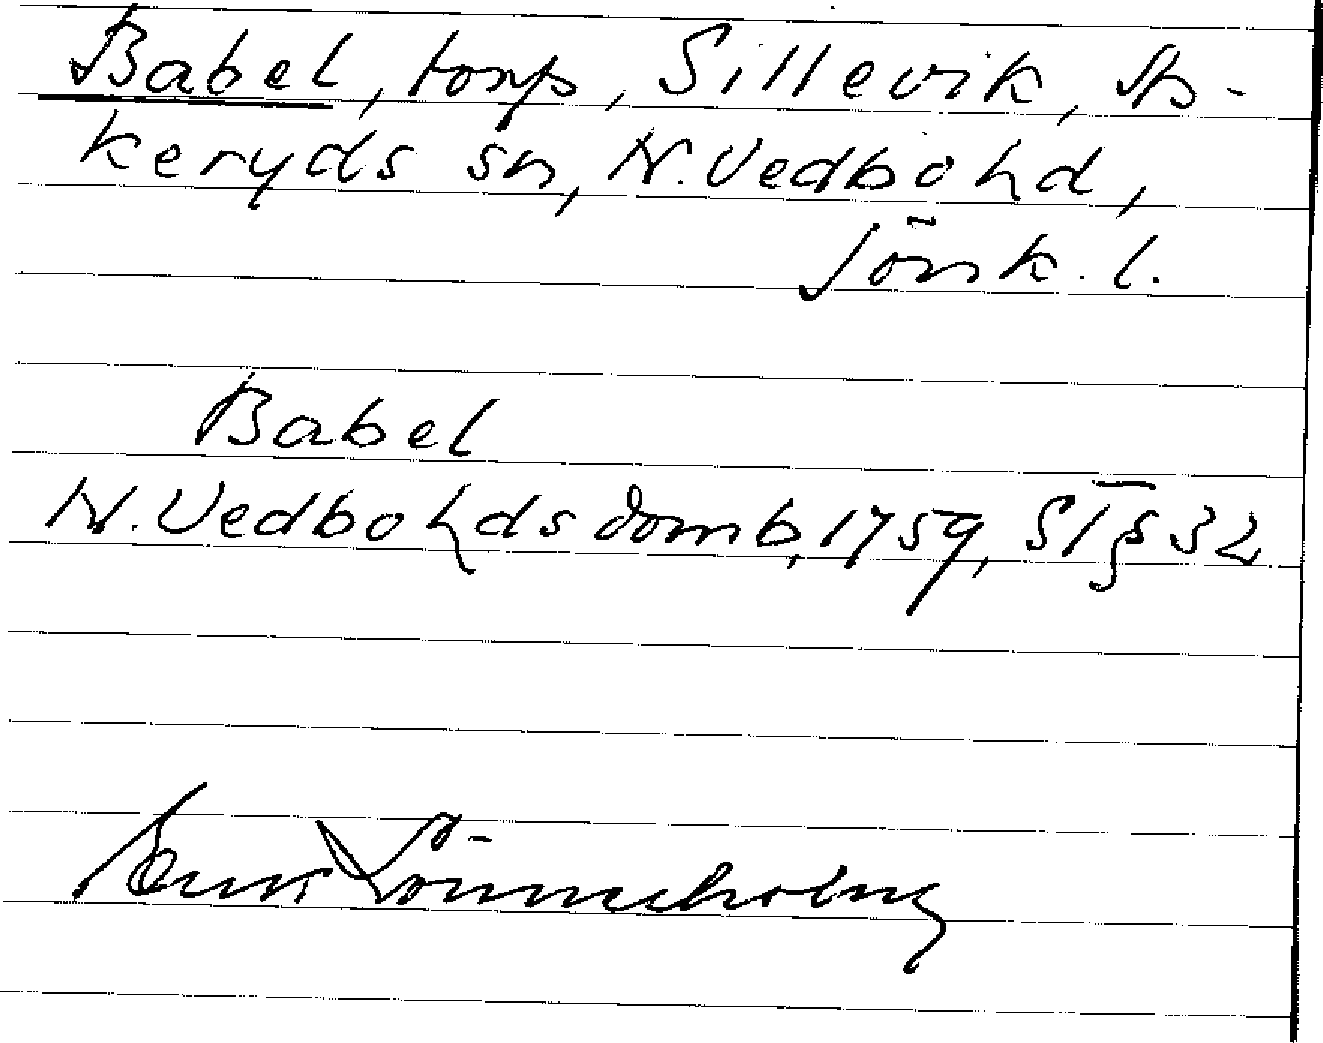 Babel, torp, Sillevik, As-
keryds sn, N. Vedbo hd,
Jönk. l.
Babel
N. Vedbo hds domb, 1759, ST § 32
Lönneholm